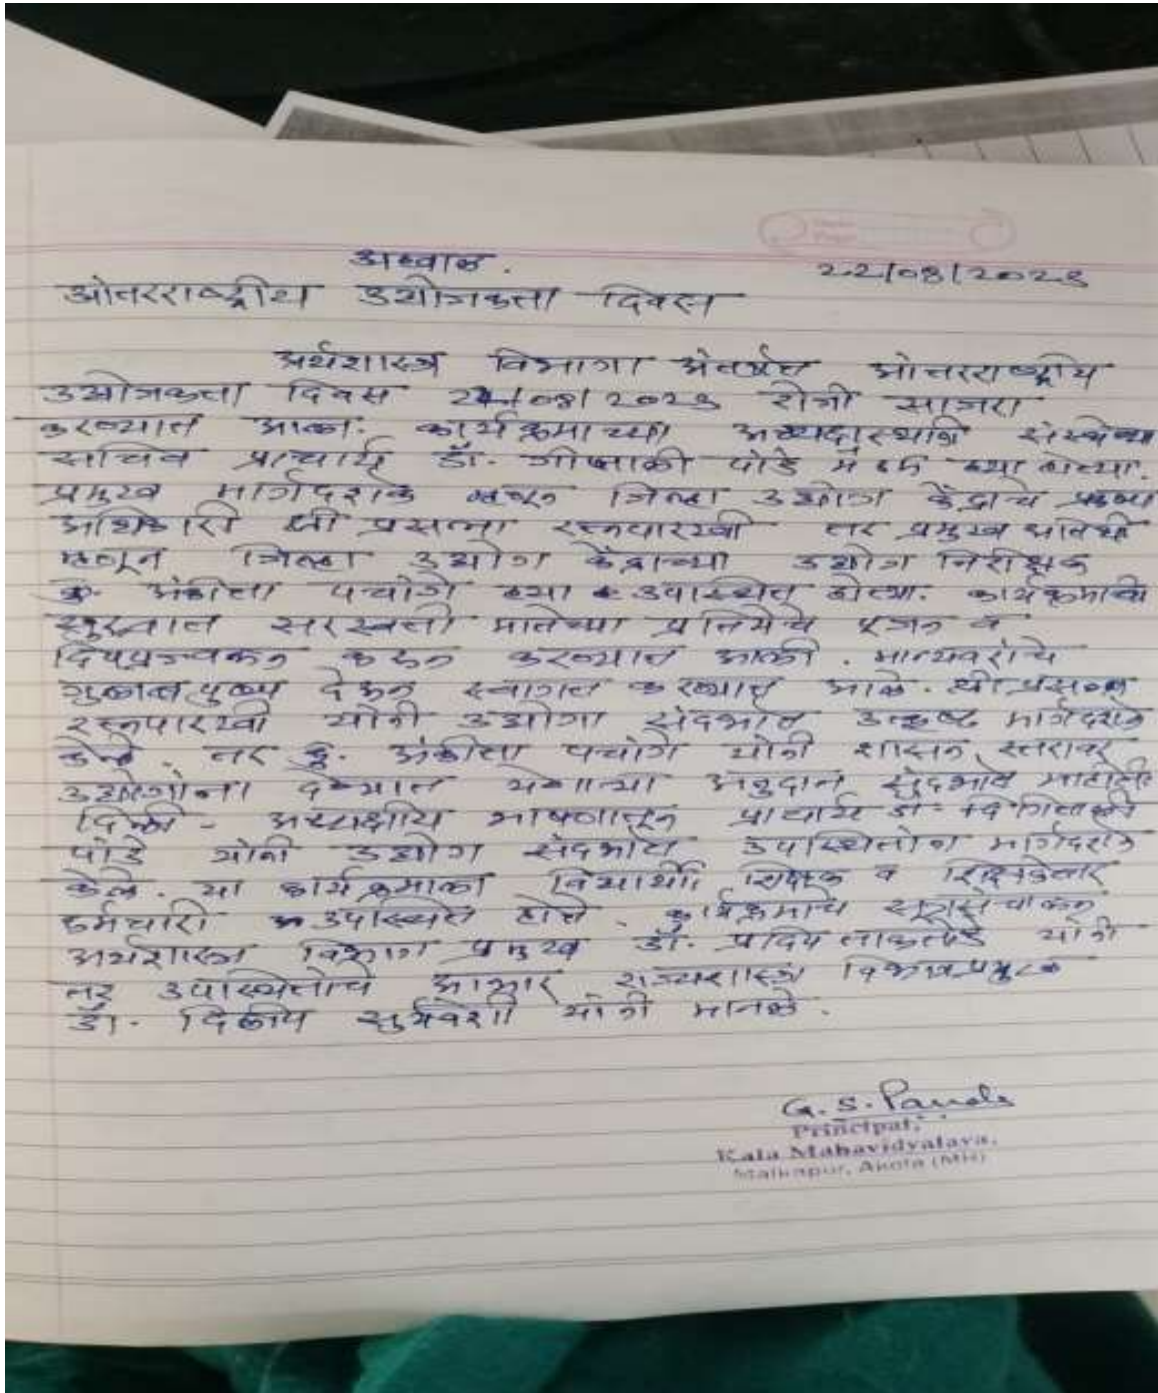 अहवाल.
22/08/2023
आंतरराष्ट्रीय उद्योजकता दिवस
अर्थशास्त्र विभागा अंतर्गत आंतरराष्ट्रीय
उद्योजकता दिवस 21/08/2023 रोजी साजरा
करण्यात आला. कार्यक्रमाच्या अध्यक्षस्थानी संस्थेच्या
सचिव प्राचार्य डॉ. गीताली पांडे ह्या होत्या.
प्रमुख मार्गदर्शक म्हणून जिल्हा उद्योग केंद्राचे
अधिकारी श्री प्रसन्ना रत्नपारखी तर प्रमुख अतिथी
म्हणून जिल्हा उद्योग केंद्राच्या उद्योग निरीक्षक
कु. अंकीता पचांगे ह्या उपस्थित होत्या. कार्यक्रमाची
सुरुवात सरस्वती मातेच्या प्रतिमेचे पूजन व
दिपप्रज्वलन करून करण्यात आली. मान्यवरांचे
गुलाब पुष्प देऊन स्वागत करण्यात आले. श्री प्रसन्न
रत्नपारखी यांनी उद्योगा संदर्भात उत्कृष्ट मार्गदर्शन
केले. तर कु. अंकीता पचांगे यांनी शासन स्तरावर
उद्योगांना देण्यात येणाऱ्या अनुदान संदर्भात माहिती
दिली - अध्यक्षीय भाषणातून प्राचार्य डॉ. गिताली
पांडे यांनी उद्योग संदर्भात उपस्थितांना मार्गदर्शन
केले. या कार्यक्रमाला विद्यार्थी शिक्षक व शिक्षकेत्तर
कर्मचारी उपस्थित होते. कार्यक्रमाचे सूत्रसंचालन
अर्थशास्त्र विभाग प्रमुख डॉ. प्रदिप यांनी
तर उपस्थितांचे आभार राज्यशास्त्र विभागप्रमुख
डॉ. दिलीप सुर्यवंशी यांनी मानले.
G. S. Pande
Principal,
Kala Mahavidyalaya,
Malkapur, Akola (MH)